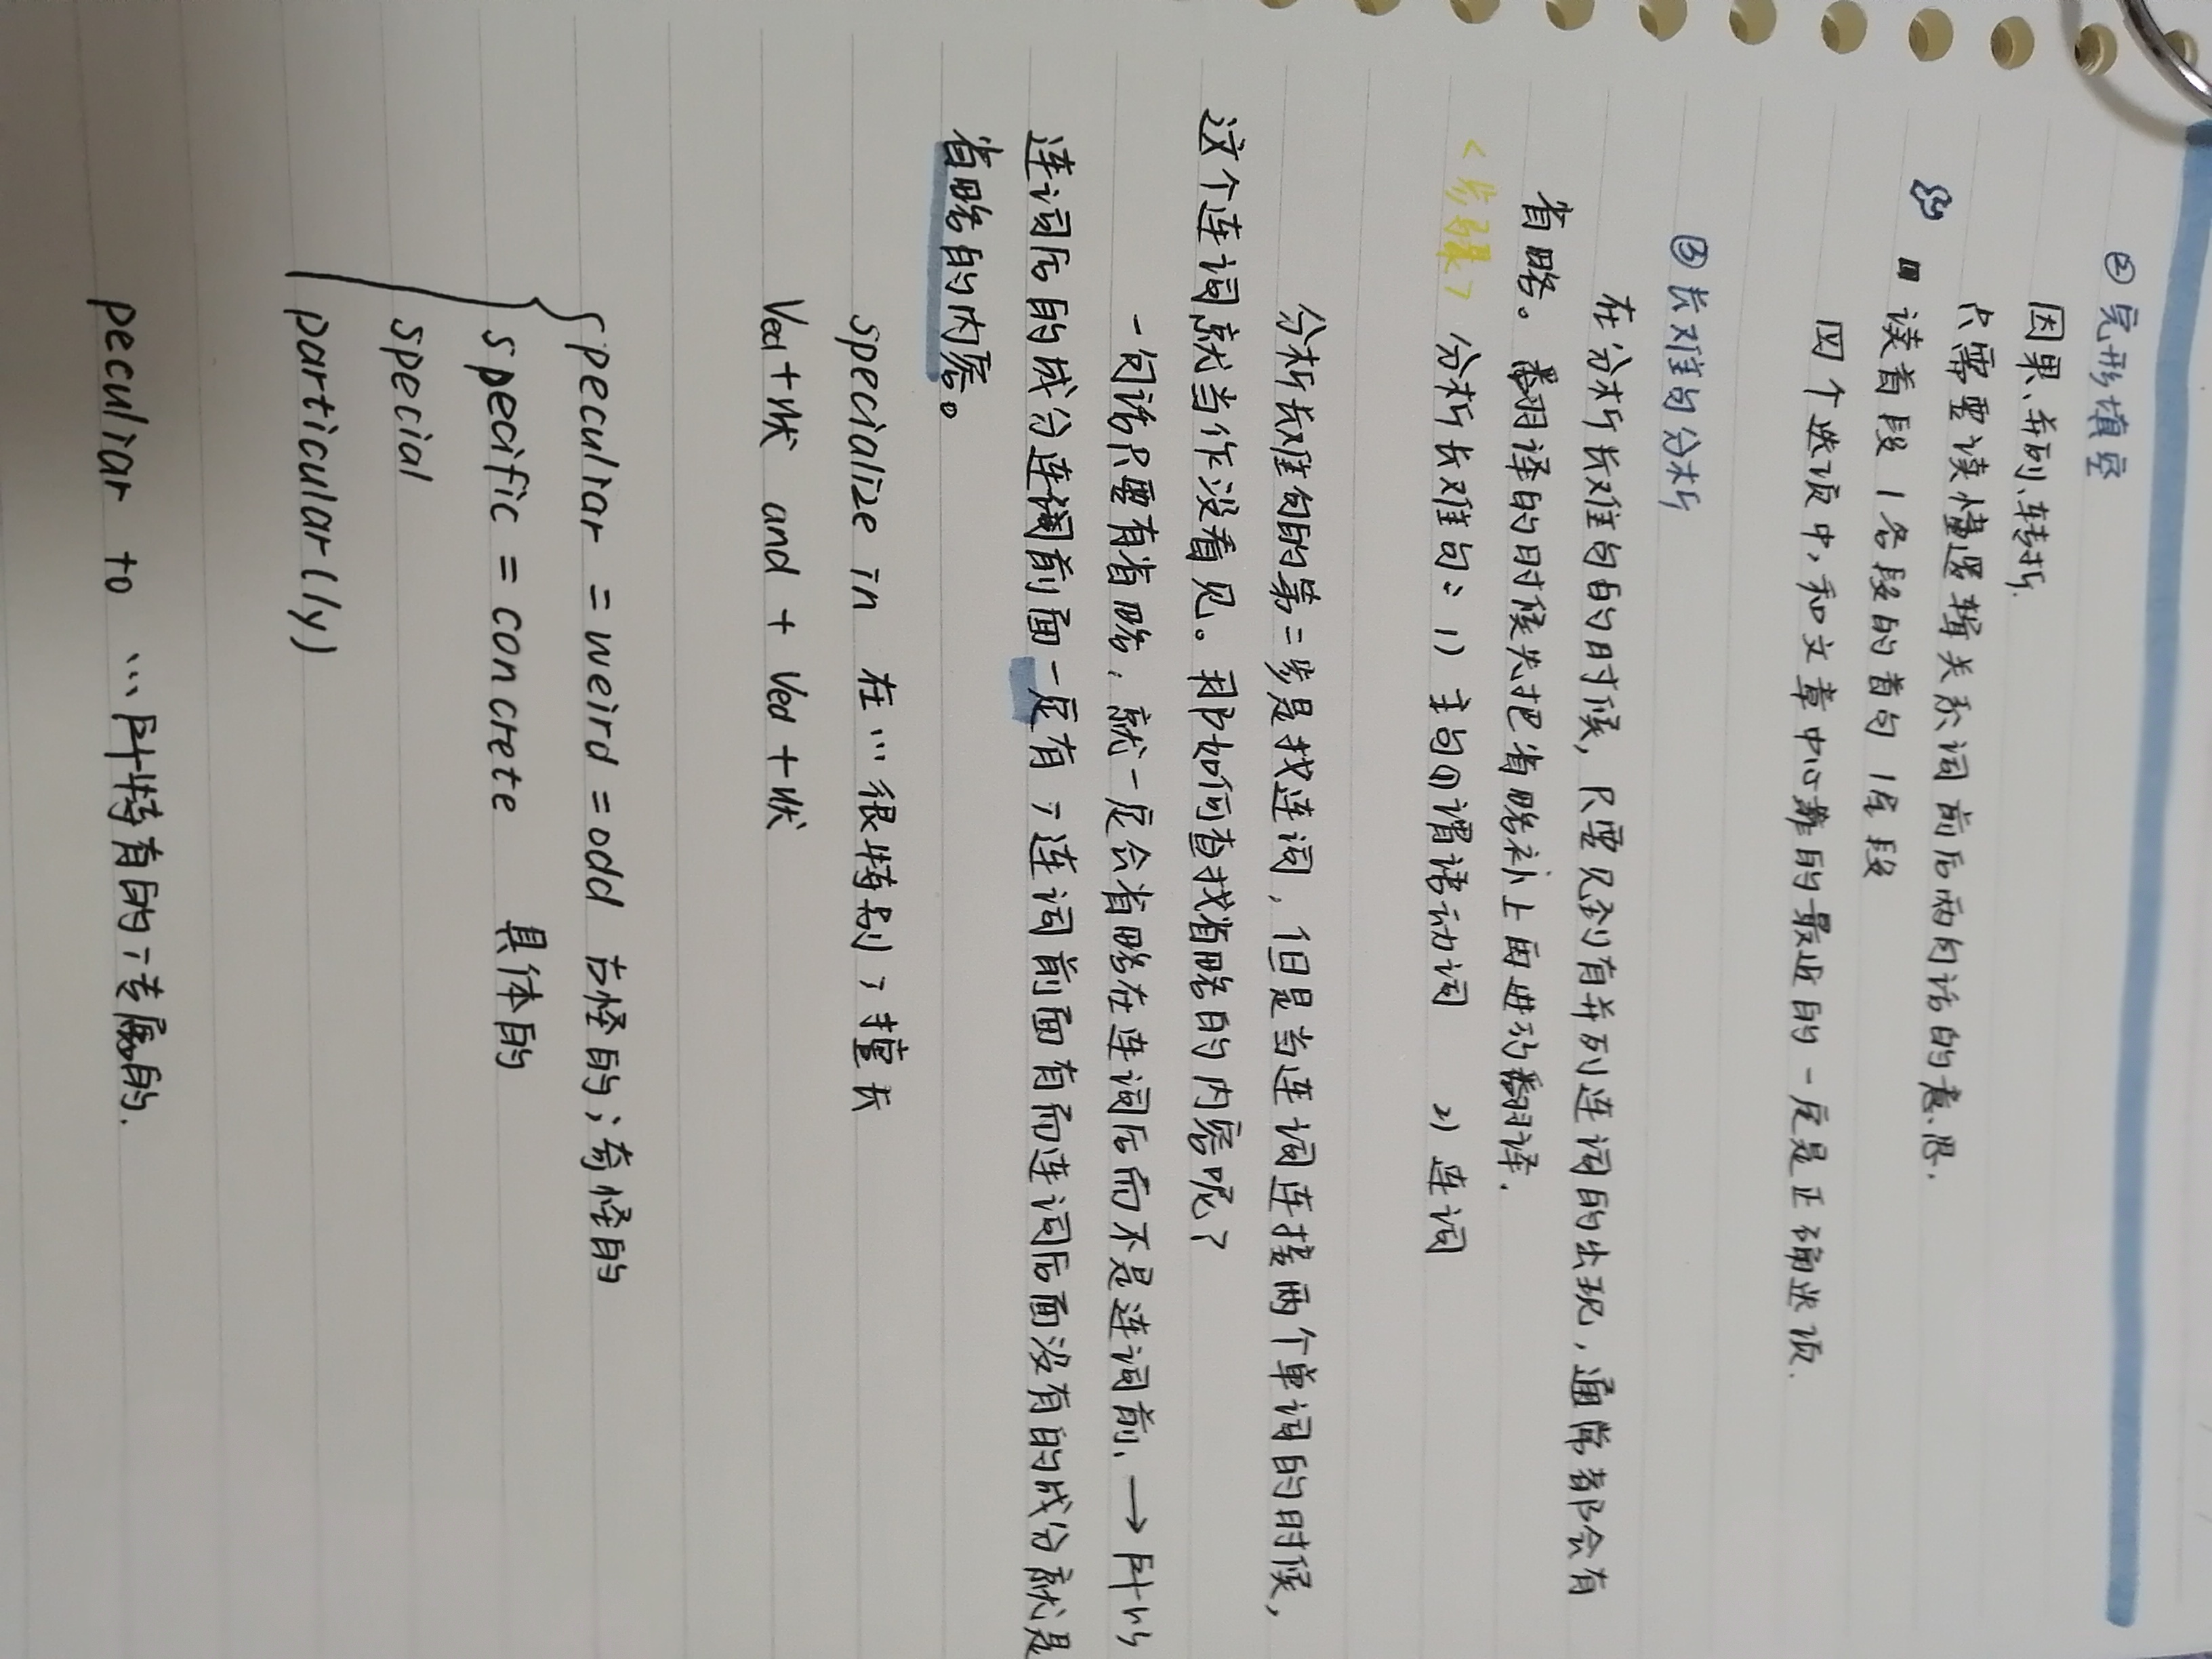 ②完形填空
因果、并列、转折.
只需要读懂逻辑关系词前后两句话的意思.
读首段 / 各段的首句 / 尾段
四个选项中,和文章中心靠的最近的一定是正确选项.
③长难句分析
在分析长难句的时候,只要见到有并列连词的出现,通常都会有
省略。翻译的时候先把省略补上再进行翻译.
<步骤> 分析长难句: 1) 主句的谓语动词 2) 连词
分析长难句的第二步是找连词,但是当连词连接两个单词的时候,
这个连词就当作没看见。那如何查找省略的内容呢?
一句话只要有省略,就一定会省略在连词后而不是连词前、→所以
连词后的成分连词前面一定有;连词前面有而连词后面没有的成分就是
省略的内容。
specialize in 在…很特别;擅长
Ved+状 and + Ved +状
peculiar = weird = odd 古怪的;奇怪的
specific = concrete 具体的
special
particular(ly)
peculiar to …所特有的;专属的.